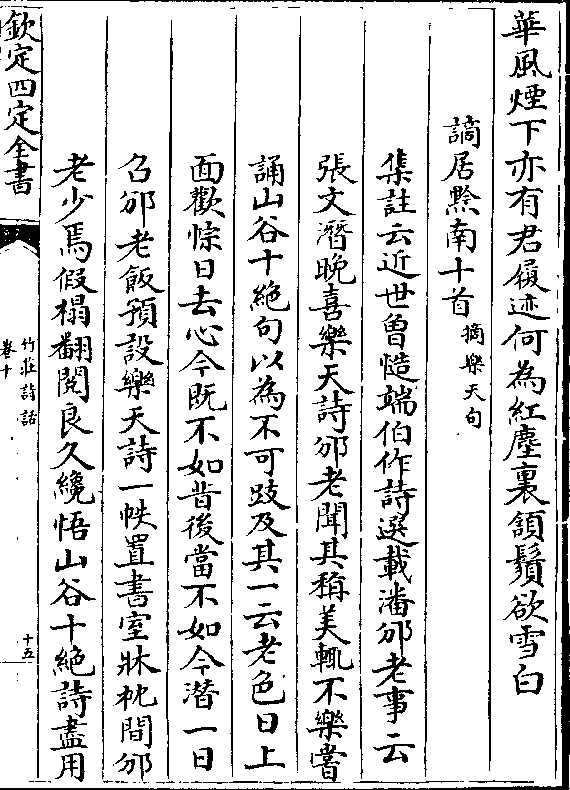 華風煙下亦有君履迹何為紅塵裏頷鬚欲雪白
謫居黔南十首摘樂天句
集註云近世曾慥端伯作詩選載潘邠老事云
張文潛晚喜樂天詩邠老聞其稱美輒不樂嘗
誦山谷十絶句以為不可跂及其一云老色日上
面歡悰日去心今既不如昔後當不如今潛一日
召邠老飯預設樂天詩一帙置書室牀枕間邠
老少焉假榻翻閲良久纔悟山谷十絶詩盡用
欽定四定全書
竹莊詩話
卷十
十五